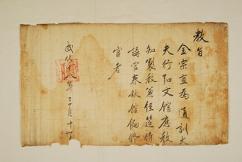 敎旨
金宗直為通訓大
夫行弘文館應敎
知製敎兼經筵侍
講官春秋館編修
官者
成化
年十月十